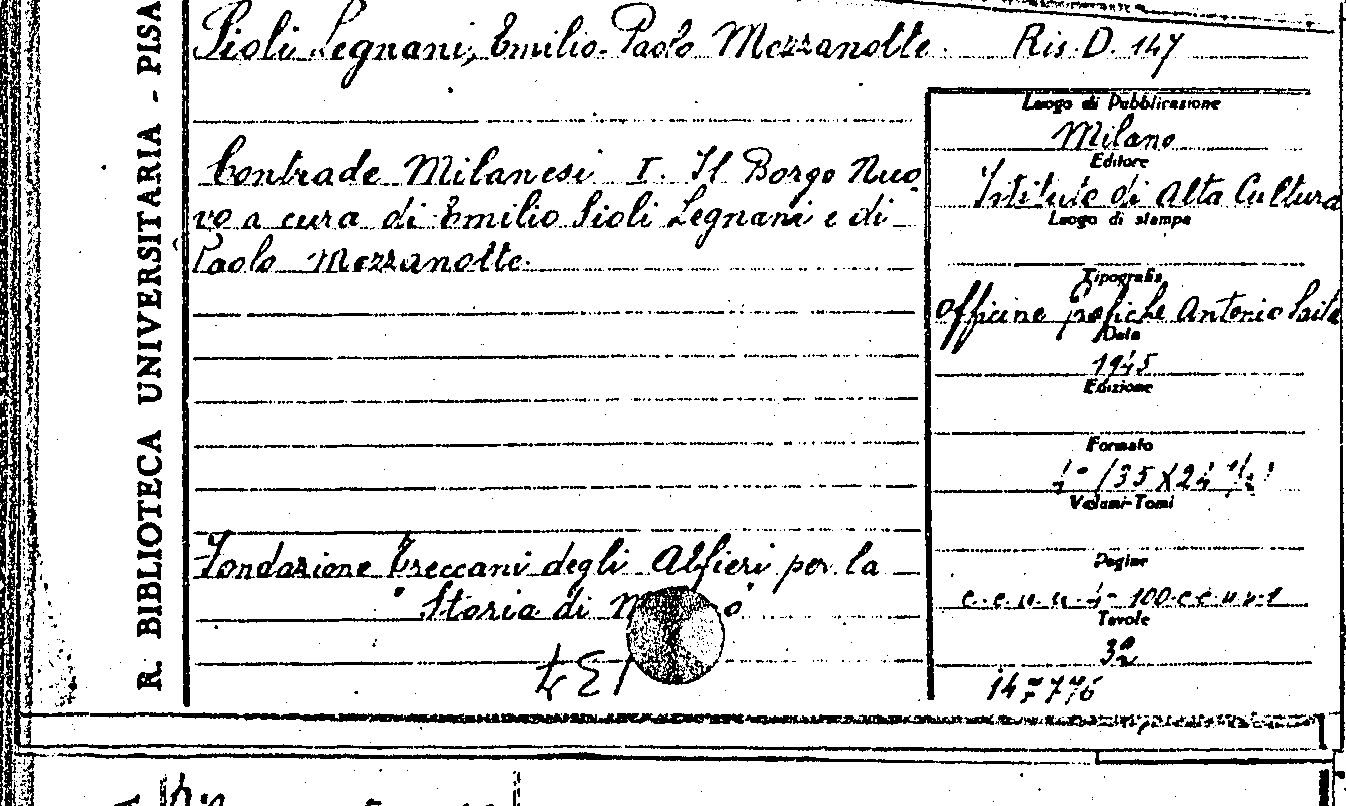 R. BIBLIOTECA UNIVERSITARIA - PISA
Sioli Legnani, Emilio - Paolo Mezzanotte. Ris. D. 147
Contrade Milanesi I. Il Borgo Nuo
vo a cura di Emilio Sioli Legnani e di
Paolo Mezzanotte.
Fondazione Treccani degli Alfieri per la
"Storia di
Luogo di Pubblicazione
Milano
Editore
Istituto di Alta Cultura
Luogo di stampa
Tipografia
Officine Grafiche Antonio Saita
Data
1945
Edizione
Formato
4° (35 X 24 1/2)
Volumi-Tomi
Pagine
c.c.n.n. 4 - 100 c.c.n.n. 1
Tavole
32
147776